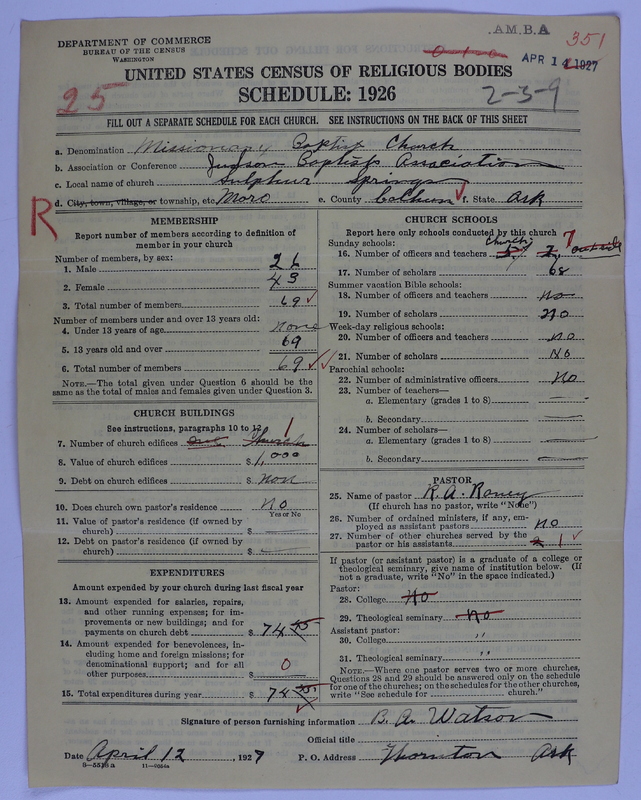 .A.M.B.A
DEPARTMENT OF COMMERCE
BUREAU OF THE CENSUS
WASHINGTON
351
APR 14 1927
UNITED STATES CENSUS OF RELIGIOUS BODIES
25
SCHEDULE: 1926
2-3-9
FILL OUT A SEPARATE SCHEDULE FOR EACH CHURCH. SEE INSTRUCTIONS ON THE BACK OF THIS SHEET
a. Denomination Missionary Baptist Church
b. Association or Conference Judson Baptists Association
c. Local name of church Sulphur Springs
R
d. City, town, village, or township, etc. Moro e. County Calhoun f. State Ark
MEMBERSHIP
Report number of members according to definition of
member in your church
Number of members, by sex:
1. Male 26
2. Female 43
3. Total number of members 69
Number of members under and over 13 years old:
4. Under 13 years of age None
5. 13 years old and over 69
6. Total number of members 69
NOTE.—The total given under Question 6 should be the
same as the total of males and females given under Question 3.
CHURCH BUILDINGS
See instructions, paragraphs 10 to 12
7. Number of church edifices One Church 1
8. Value of church edifices $1,000
9. Debt on church edifices $ non
10. Does church own pastor's residence No
Yes or No
11. Value of pastor's residence (if owned by
church) $
12. Debt on pastor's residence (if owned by
church) $
EXPENDITURES
Amount expended by your church during last fiscal year
13. Amount expended for salaries, repairs,
and other running expenses; for im-
provements or new buildings; and for
payments on church debt $ 74
14. Amount expended for benevolences, in-
cluding home and foreign missions; for
denominational support; and for all
other purposes $ 0
15. Total expenditures during year $ 74
CHURCH SCHOOLS
Report here only schools conducted by this church
Sunday schools: Church 7 outside
16. Number of officers and teachers 5 2
17. Number of scholars 68
Summer vacation Bible schools:
18. Number of officers and teachers No
19. Number of scholars No
Week-day religious schools:
20. Number of officers and teachers No
21. Number of scholars No
Parochial schools:
22. Number of administrative officers No
23. Number of teachers—
a. Elementary (grades 1 to 8)
b. Secondary
24. Number of scholars—
a. Elementary (grades 1 to 8)
b. Secondary
PASTOR
25. Name of pastor R. A. Roney
(If church has no pastor, write "None")
26. Number of ordained ministers, if any, em-
ployed as assistant pastors No
27. Number of other churches served by the
pastor or his assistants 2 1
If pastor (or assistant pastor) is a graduate of a college or
theological seminary, give name of institution below. (If
not a graduate, write "No" in the space indicated.)
Pastor:
28. College No
29. Theological seminary No
Assistant pastor:
30. College "
31. Theological seminary "
NOTE.—Where one pastor serves two or more churches,
Questions 28 and 29 should be answered only on the schedule
for one of the churches; on the schedules for the other churches,
write "See schedule for church."
Signature of person furnishing information B. A. Watson
Official title
Date April 12, 1927 P. O. Address Thornton Ark
8-5519a